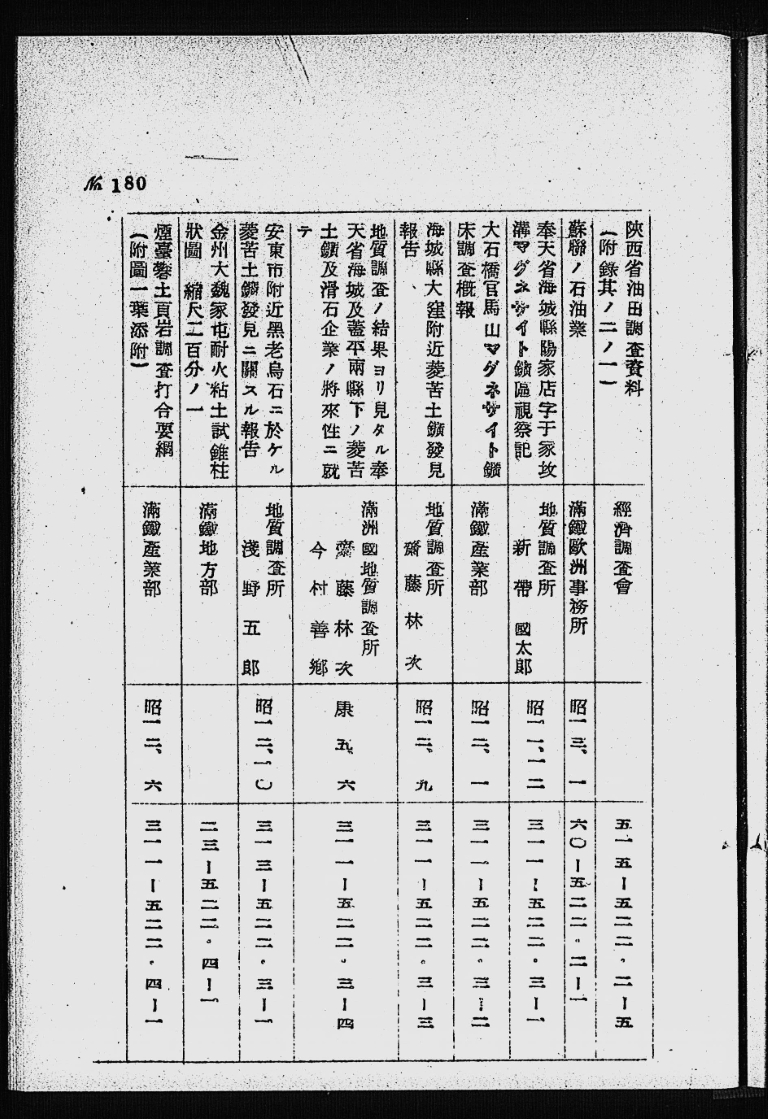 No. 180
陝西省油田調査資料
(附錄其ノ二ノ一)
經濟調査會
五一五ー五二二。二ー五
蘇聯ノ石油業
滿鐵歐洲事務所
昭一三、一
六〇ー五二二。二ー一
奉天省海城縣陽家店字于家坟
溝マグネサイト鑛區視察記
地質調査所
新帶國太郎
昭一一、一二
三一一ー五二二。三ー一
大石橋官馬山マグネサイト鑛
床調査概報
滿鐵產業部
昭一二、一
三一一ー五二二。三ー二
海城縣大窪附近菱苦土鑛發見
報告
地質調査所
齋藤林次
昭一二、九
三一一ー五二二。三ー三
地質調査ノ結果ヨリ見タル奉
天省海城及蓋平兩縣下ノ菱苦
土鑛及滑石企業ノ將來性ニ就
テ
滿洲國地質調査所
齋藤林次
今村善鄉
康五、六
三一一ー五二二。三ー四
安東市附近黑老烏石ニ於ケル
菱苦土鑛發見ニ關スル報告
地質調査所
淺野五郎
昭一二、一〇
三一三ー五二二。三ー一
金州大魏家屯耐火粘土試錐柱
狀圖 縮尺二百分ノ一
滿鐵地方部
二三ー五二二。四ー一
煙臺礬土頁岩調査打合要綱
(附圖一葉添附)
滿鐵產業部
昭一二、六
三一一ー五二二。四ー一